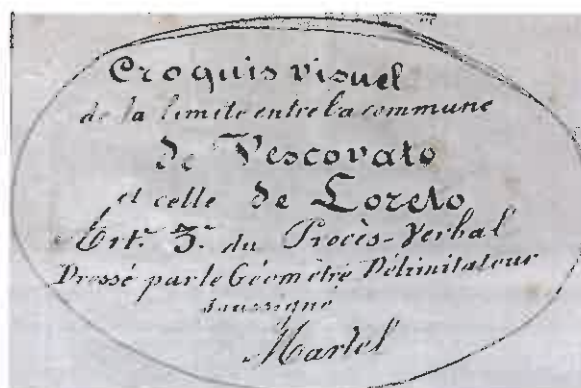 Croquis visuel
de la limite entre la commune
de Vescovato
et celle de Loreto
Art. 3. du Procès-Verbal
Dressé par le Géomètre Délimitateur
soussigné
Martel